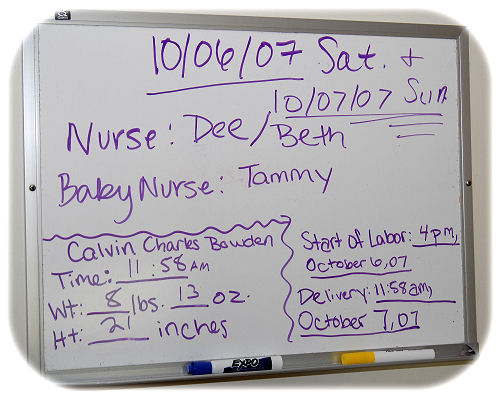 10/06/07 Sat. +
10/07/07 Sun.
Nurse: Dee/Beth
Baby Nurse: Tammy
Calvin Charles Bowden
Time: 11:58 AM
Wt: 8 lbs. 13 oz.
Ht: 21 inches
Start of Labor: 4pm,
October 6, 07
Delivery: 11:58am,
October 7, 07
EXPO